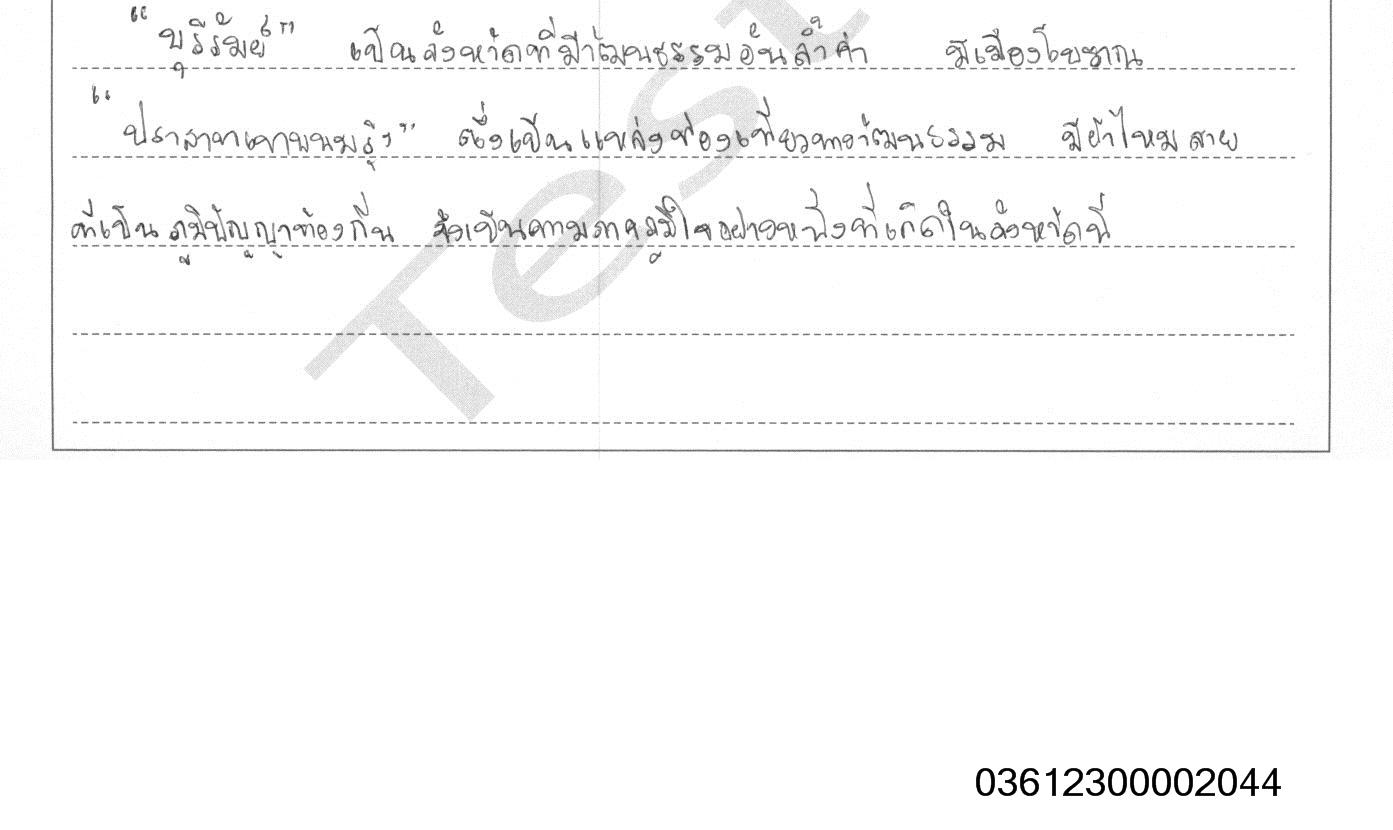 “บุรีรัมย์” เป็นจังหวัดที่มีวัฒนธรรมอันล้ำค่า มีเมืองโบราณ
“ปราสาทเขาพนมรุ้ง” ซึ่งเป็นแหล่งท่องเที่ยวทางวัฒนธรรม มีผ้าไหม สาย
ที่เป็นภูมิปัญญาท้องถิ่น จึงเป็นความภาคภูมิใจอย่างหนึ่งที่เกิดในจังหวัดนี้
Test
03612300002044